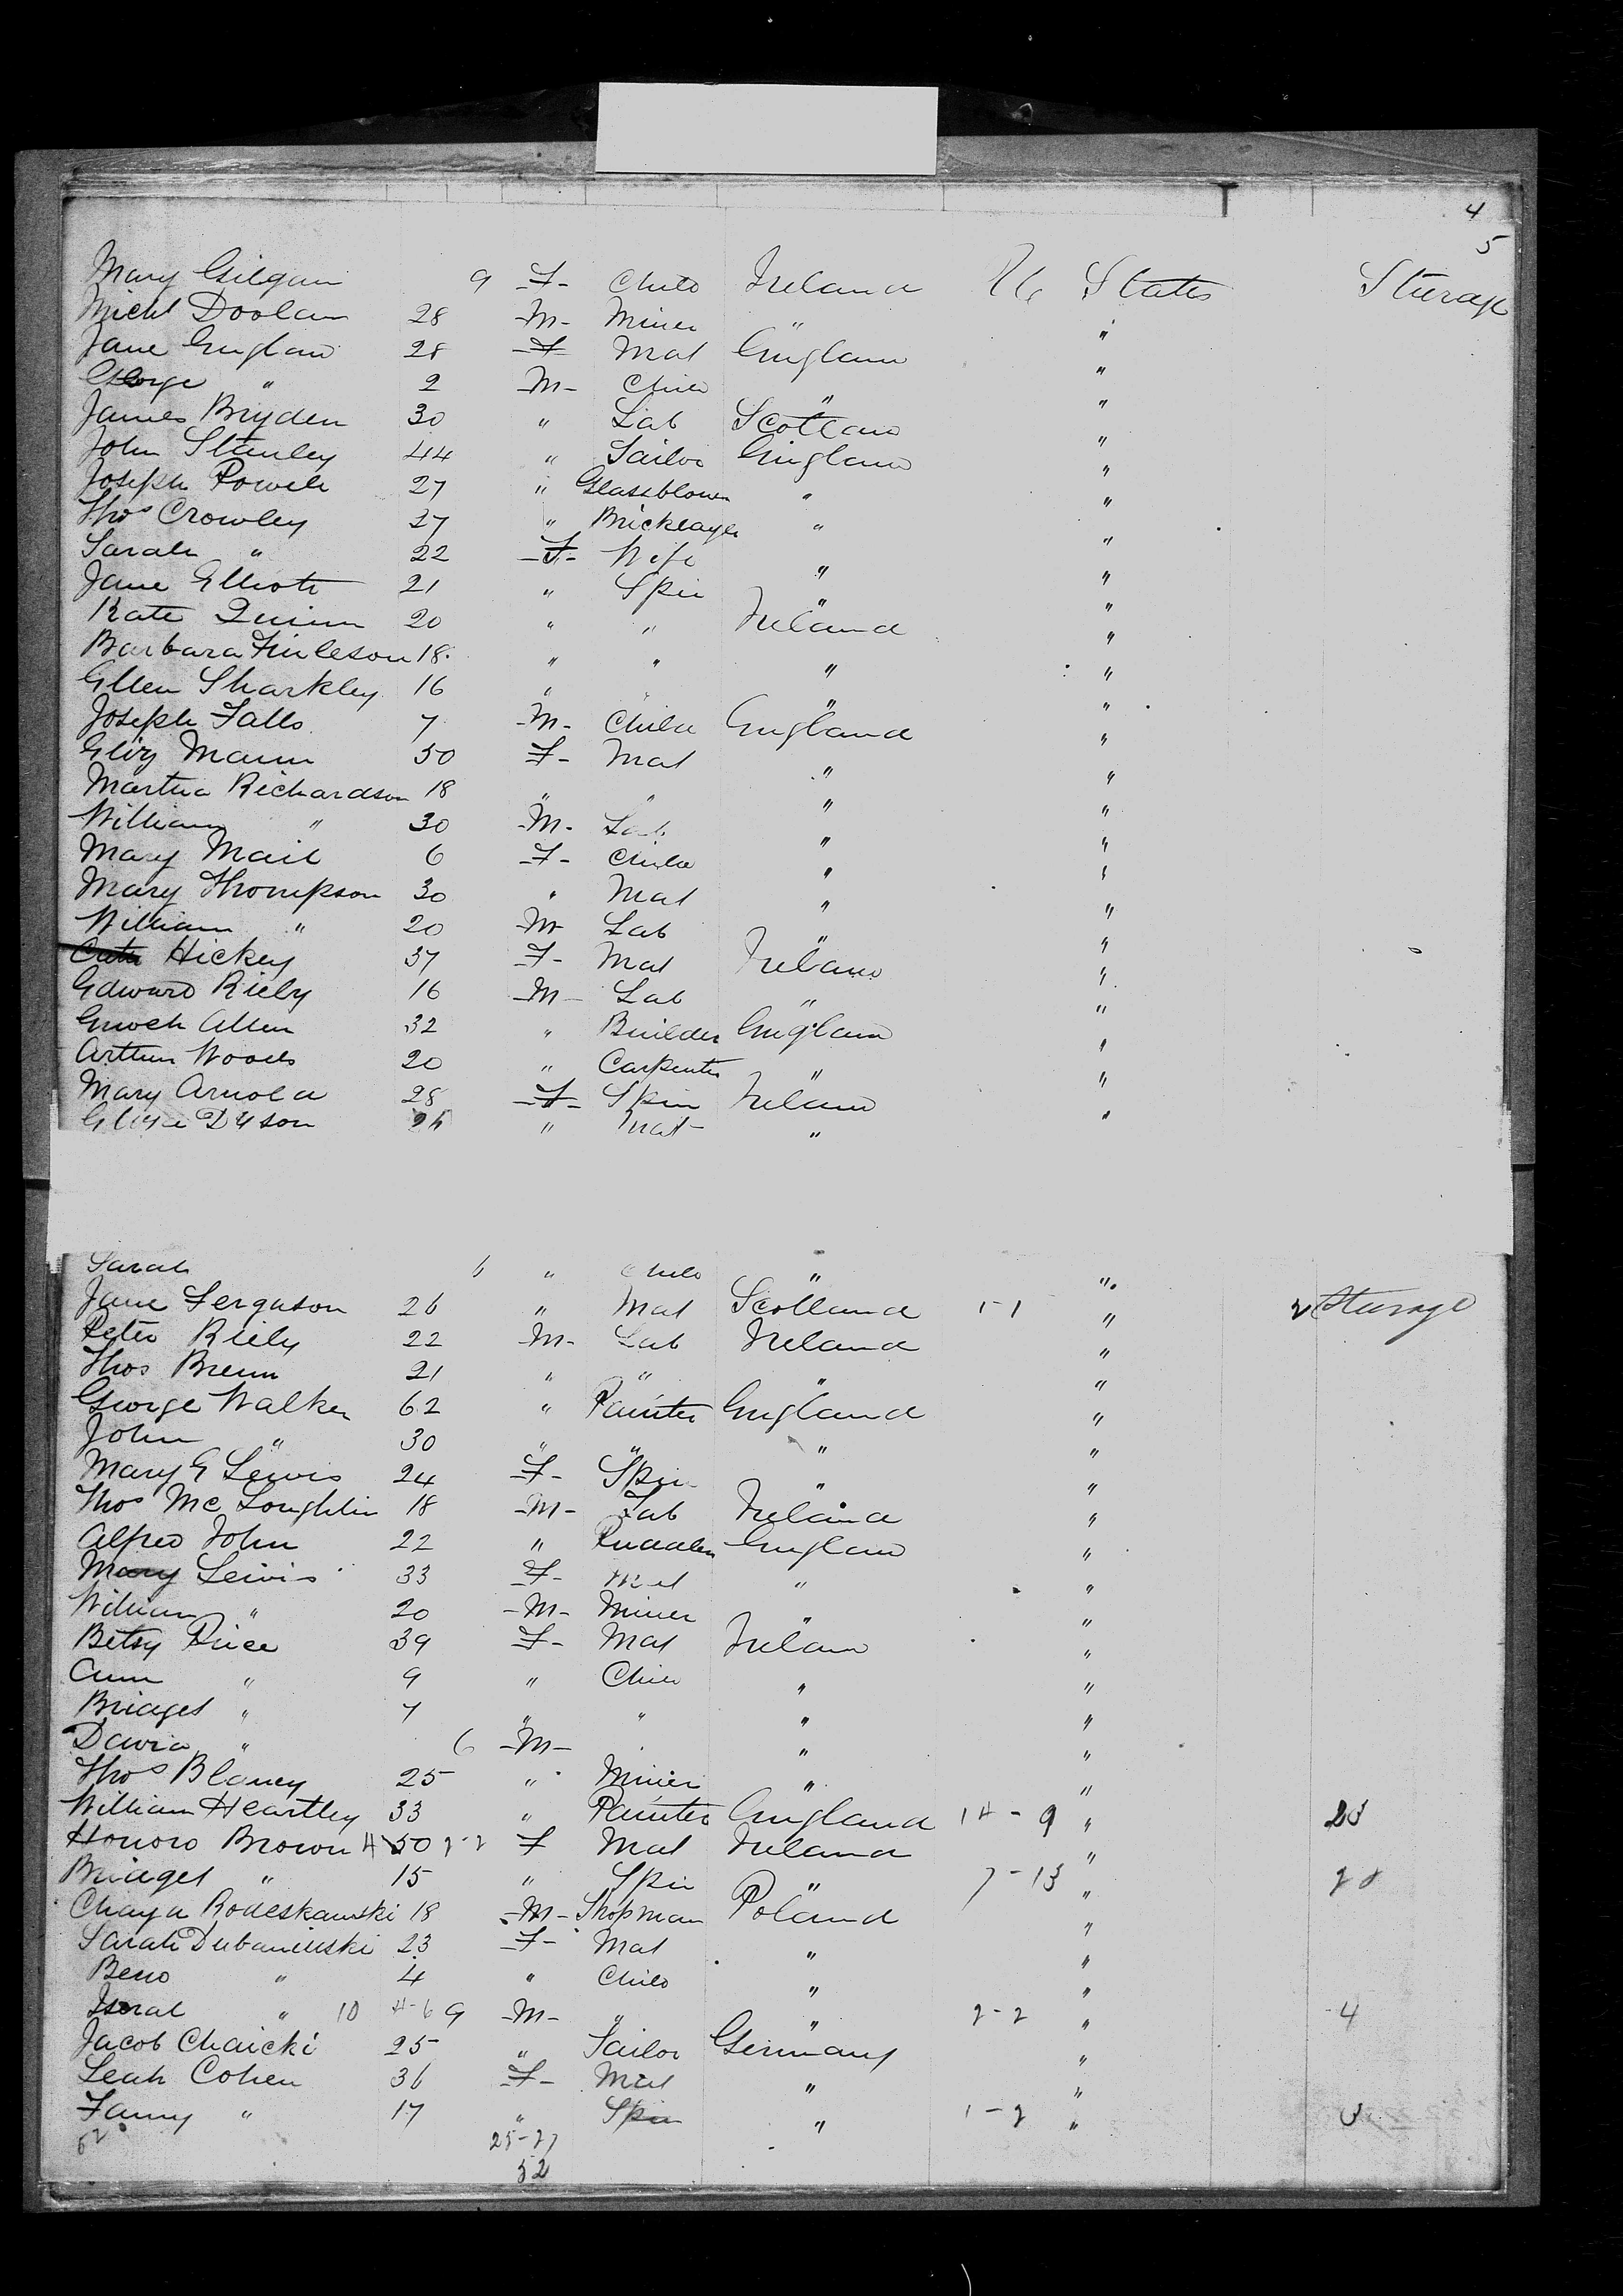 4
5
Mary Gilgan 9 F- Child Ireland U States Steerage
Michl Doolan 28 M- Miner " "
Jane England 28 F Mat England "
George " 2 M- Child " "
James Bryden 30 " Lab Scotland "
John Stanley 44 " Tailor England "
Joseph Powell 27 " Glassblower " "
Thos Crowley 27 " Bricklayer " "
Sarah " 22 F- Wife " "
Jane Elliott 21 " Spin " "
Kate Quinn 20 " " Ireland "
Barbara Finleson 18 " " " "
Ellen Sharkley 16 " " " "
Joseph Falls 7 M- Child England "
Eliz Mann 50 F- Mat " "
Martha Richardson 18 " " " "
William " 30 M- Lab " "
Mary Mail 6 F- Child " "
Mary Thompson 30 " Mat " "
William " 20 M Lab " "
Hickey 37 F- Mat Ireland "
Edward Riely 16 M- Lab " "
Enoch Allen 32 " Builder England "
Arthur Woods 20 " Carpenter " "
Mary Arnold 28 F- Spin Ireland "
Dyson " Mat "
Sarah 6 " Child " "
Jane Ferguson 26 " Mat Scotland 1-1 " Steerage
Peter Riely 22 M- Lab Ireland "
Thos Brenn 21 " " " "
George Walker 62 " Painter England "
John " 30 " " " "
Mary E Lewis 24 F- Spin " "
Thos McLoughlin 18 M- Lab Ireland "
Alfred John 22 " Puddler England "
Mary Lewis 33 F- Mat " "
William " 20 M- Miner " "
Betsy Price 39 F- Mat Ireland "
Ann " 9 " Child " "
Bridget " 7 " " " "
David " 6 M- " " "
Thos Blaney 25 " Miner " "
William Heartley 33 " Painter England 14-9 " 23
Honoro Brown 50 2-2 F Mat Ireland "
Bridget " 15 " Spin " 7-13 " 20
Chaya Rodeskawski 18 M- Shopman Poland "
Sarah Dubaniewski 23 F- Mat " "
Beno " 4 " Child " "
" 10 4-6 9 M- " " 2-2 " 4
Jacob Chaicki 25 " Tailor Germany "
Leah Cohen 36 F- Mat " "
Fanny " 17 " Spin " 1-2 " 3
52 25-27
52